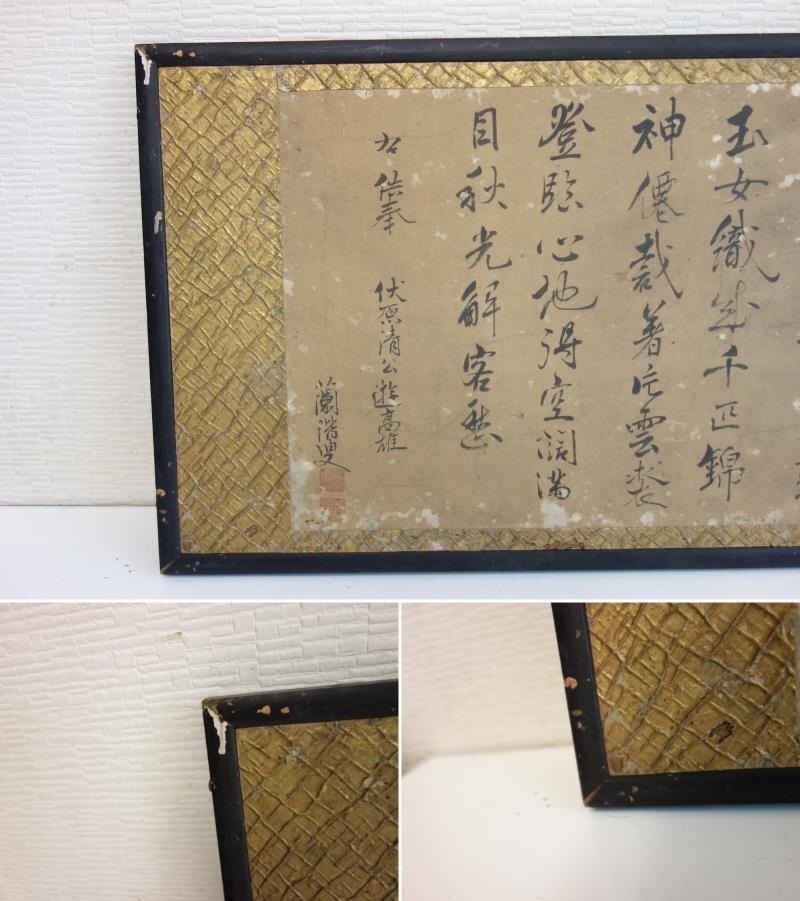 玉女織成千匹錦
神僊裁著片雲裘
登臨心地得空闊滿
目秋光解客愁
右供奉
伏原清公遊高雄
蘭澘叟